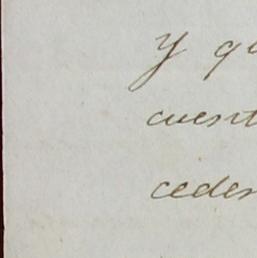 y qu
cuent
ceder